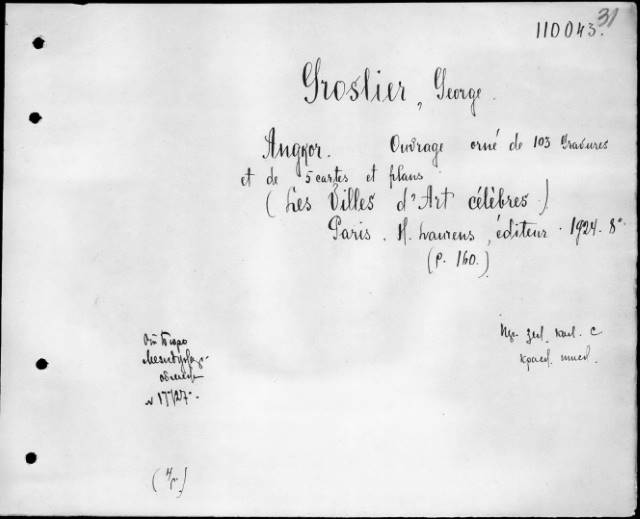 31
110043.
Groslier, George.
Angkor. Ouvrage orné de 103 Gravures
et de 5 cartes et plans
(Les Villes d'Art célèbres.)
Paris. H. Laurens, éditeur. 1924. 8°
(p. 160.)
От Бюро
Междунар.
обмена
Пер. зел. кол. с
красн. тисн.